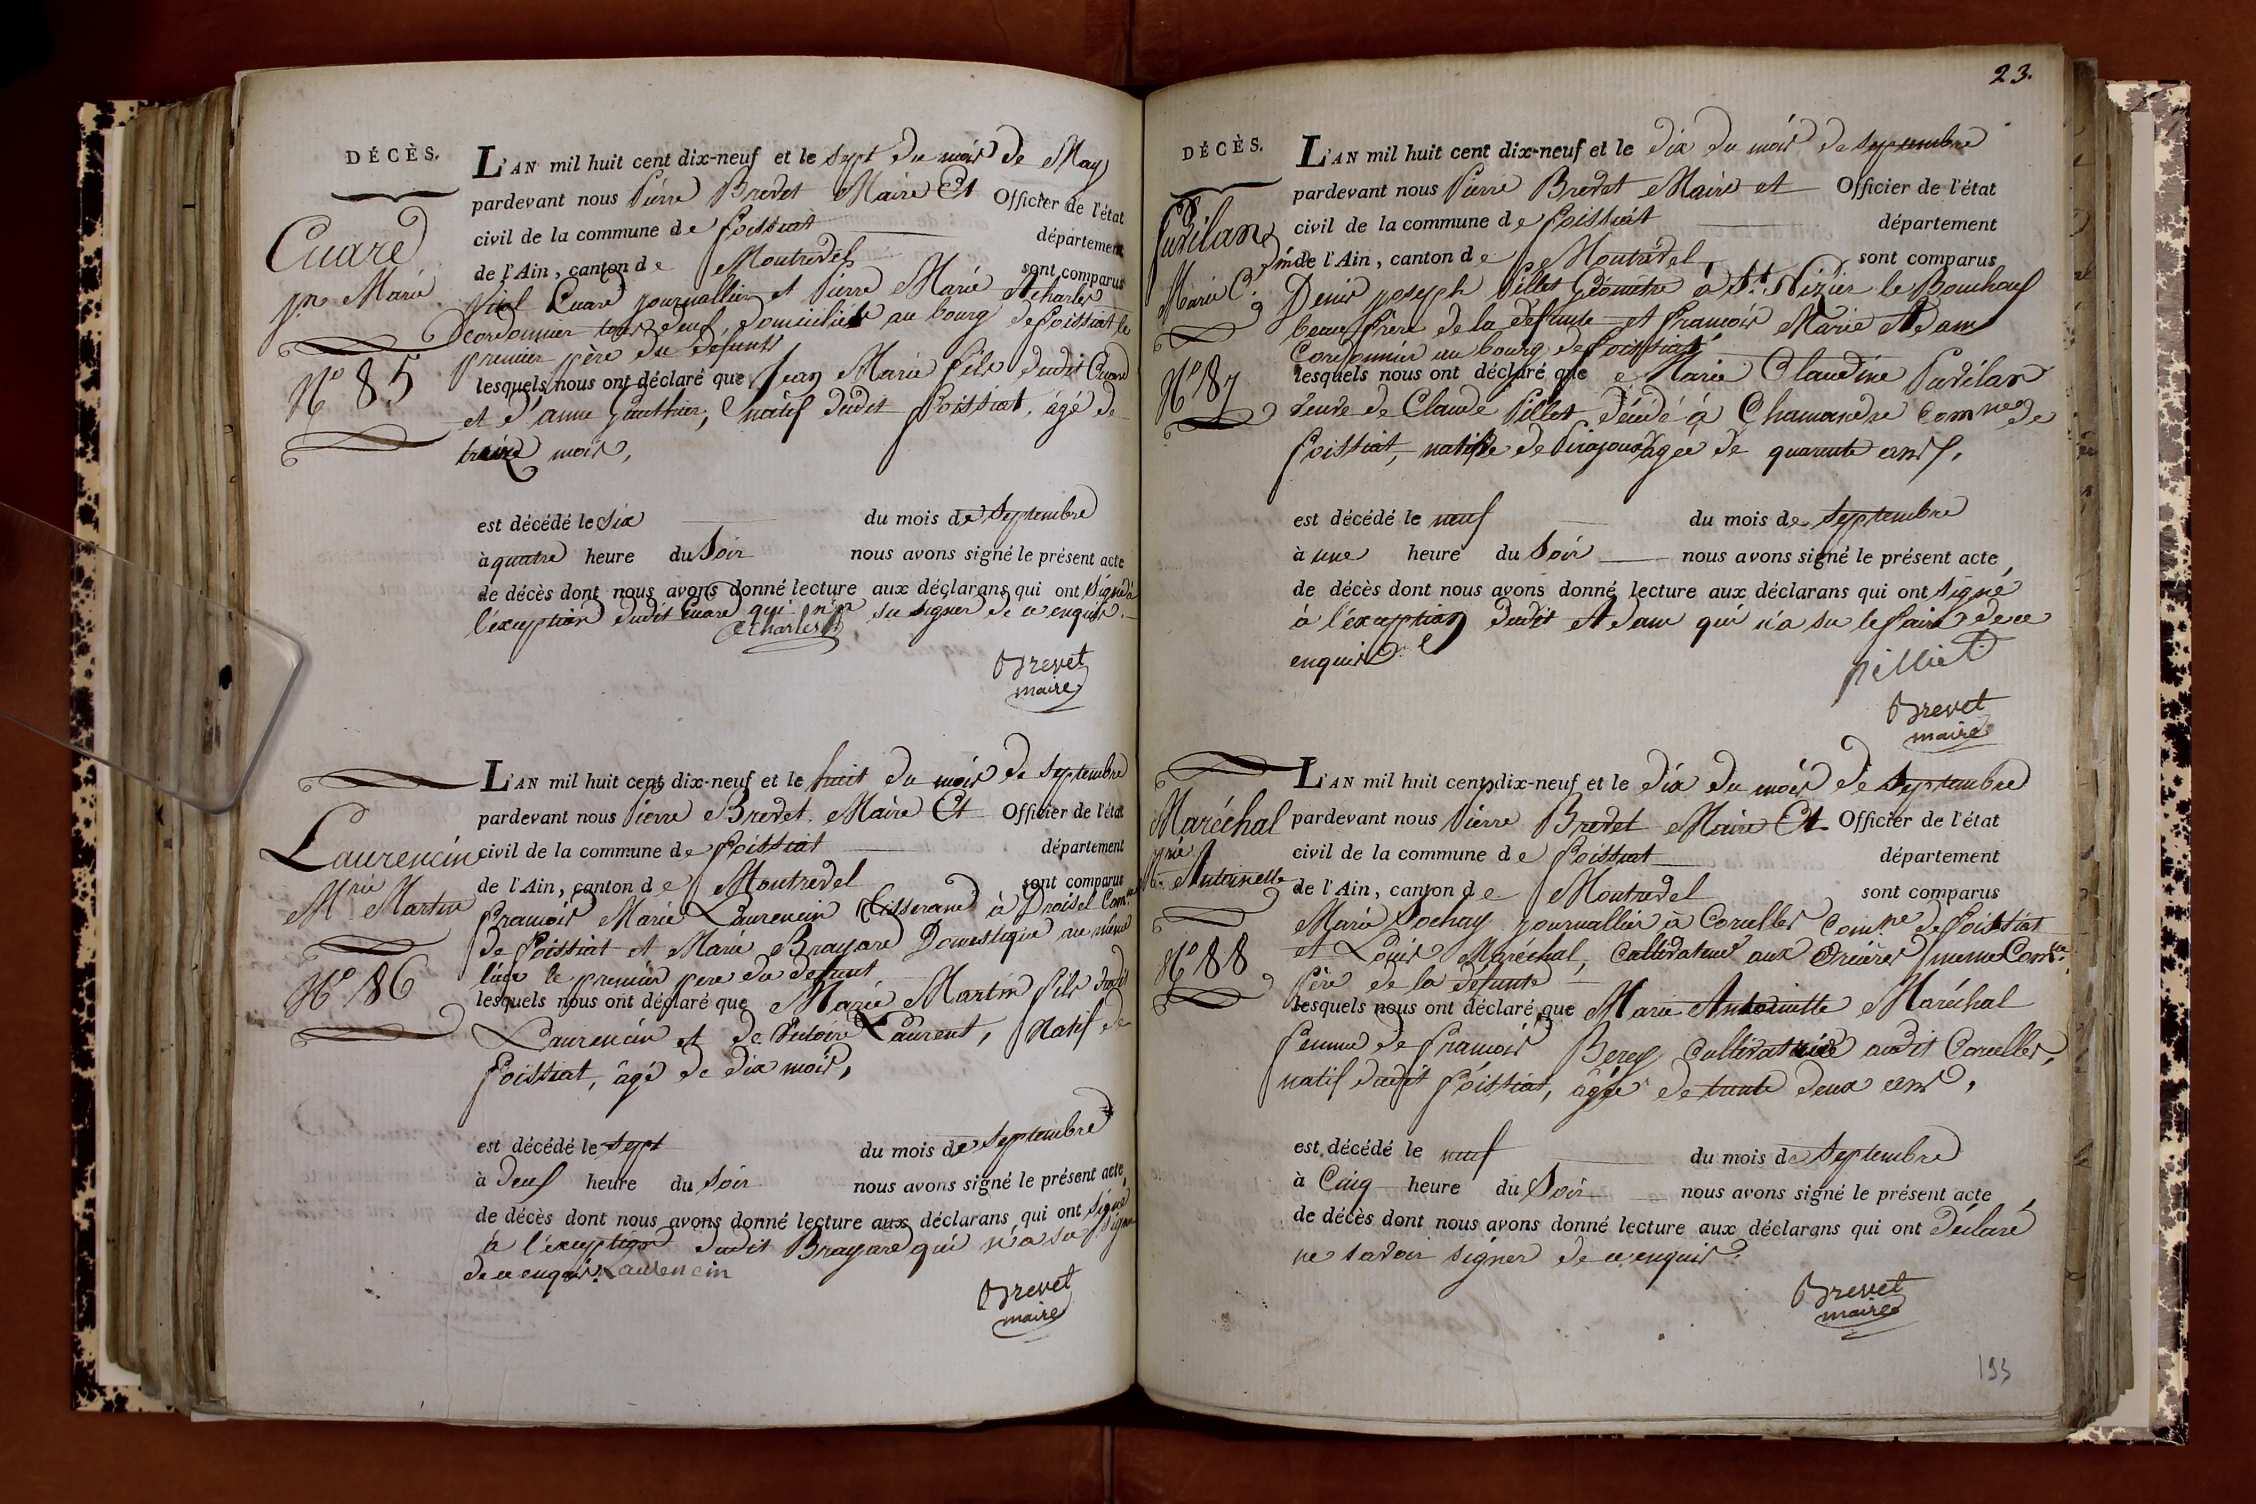 DÉCÈS.
Cuard
jn Marie
N.° 85
L'AN mil huit cent dix-neuf et le sept du mois de May
pardevant nous Pierre Brevet Maire Et Officier de l'état
civil de la commune de foissiat département
de l'Ain, canton de Montrevel sont comparus
Cuard journallier et Pierre Marie Echarles
cordonnier tous deux domiciliés au bourg de foissiat le
premier père du defunt
lesquels nous ont déclaré que Jean Marie fils dudit Cuard
et d'anne Gauthier, natif dudit foissiat, âgé de
mois,
est décédé le six du mois de Septembre
à quatre heure du Soir nous avons signé le présent acte
de décès dont nous avons donné lecture aux déclarans qui ont Signé à
l'éxception dudit Cuard qui n'a su signer de ce enquis.
Echarles
Brevet
maire
Laurencin
Mie Martin
N.° 86
L'AN mil huit cent dix-neuf et le huit du mois de Septembre
pardevant nous Pierre Brevet Maire Et Officier de l'état
civil de la commune de foissiat département
de l'Ain, canton de Montrevel sont comparus
françois Marie Laurencin Tisserand à Proisel Comne
de foissiat et Marie Brayard Domestique au même
lieu le premier pere du defunt
lesquels nous ont déclaré que Marie Martin fils dudit
Laurencin et de Laurent, Natif de
foissiat, âgé de dix mois,
est décédé le sept du mois de Septembre
à deux heure du Soir nous avons signé le présent acte
de décès dont nous avons donné lecture aux déclarans qui ont Signé
à l'éxception dudit Brayard qui n'a su Signer
de ce enquis. Laurencin
Brevet
maire
23.
DÉCÈS.
Puviland
Marie C.
dine
N.° 87
L'AN mil huit cent dix-neuf et le dix du mois de Septembre
pardevant nous Pierre Brevet Maire et Officier de l'état
civil de la commune de foissiat département
de l'Ain, canton de Montrevel sont comparus
Denis joseph Pillet Géomètre à St. Nizier le Bouchoux
beau frère de la défunte et françois Marie Adam
Cordonnier au bourg de foissiat
lesquels nous ont déclaré que Marie Claudine Puvilan
veuve de Claude Pillet décédé à Chamandre Comne de
foissiat, native de Pirajoux âgée de quarente ans,
est décédé le neuf du mois de Septembre
à une heure du Soir nous avons signé le présent acte
de décès dont nous avons donné lecture aux déclarans qui ont signé
à l'éxception dudit Adam qui n'a su le faire de ce
enquis
pilliet
Brevet
maire
Maréchal
Mrie Antoinette
N.° 88
L'AN mil huit cent dix-neuf et le dix du mois de Septembre
pardevant nous Pierre Brevet Maire Et Officier de l'état
civil de la commune de foissiat département
de l'Ain, canton de Montrevel sont comparus
Marie Sochay journallier à Corcelles Comne de foissiat
et Louis Maréchal, Cultivateur aux même Comne.
Père de la défunte
lesquels nous ont déclaré que Marie Antoinette Maréchal
femme de françois Berey Cultivatrice audit Corcelles,
natif dudit foissiat, âgée de trente deux ans,
est décédé le neuf du mois de Septembre
à Cinq heure du Soir nous avons signé le présent acte
de décès dont nous avons donné lecture aux déclarans qui ont déclaré
ne savoir signer de ce enquis.
Brevet
maire
193